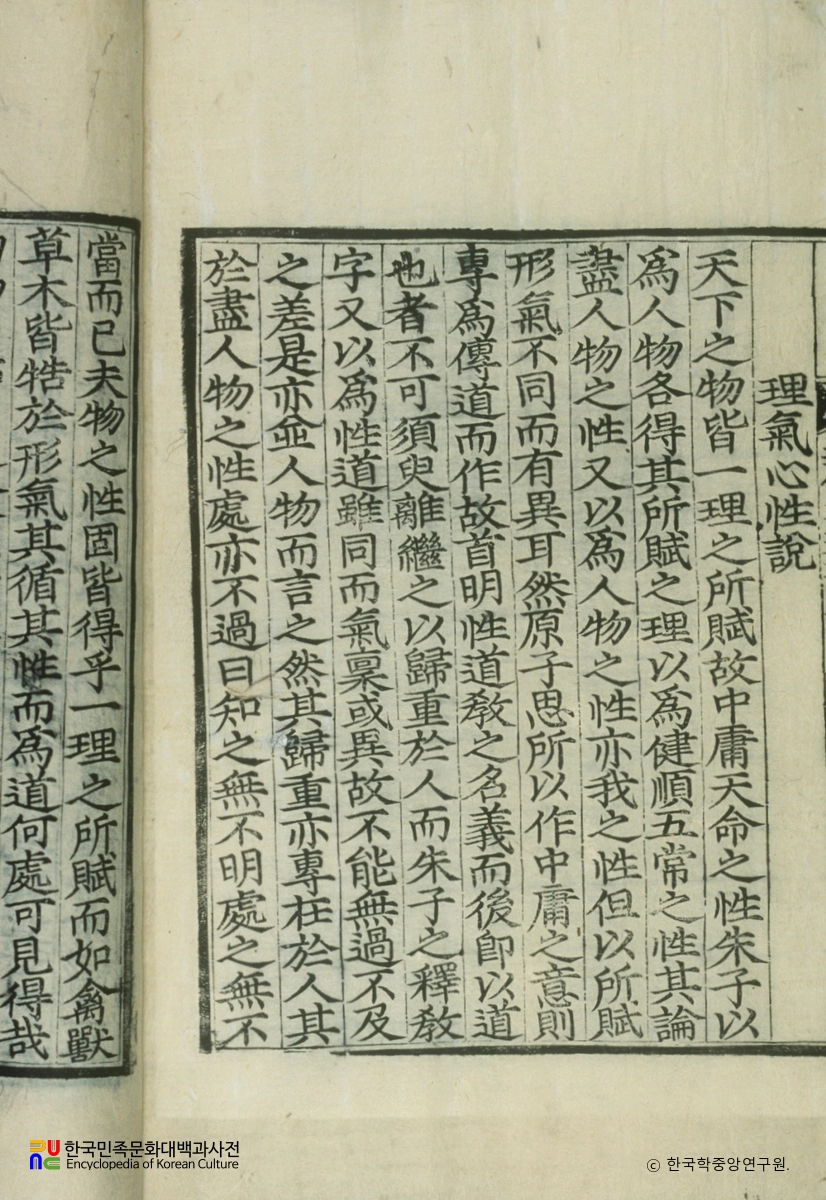 理氣心性說
天下之物皆一理之所賦故中庸天命之性朱子以
爲人物各得其所賦之理以爲健順五常之性其論
盡人物之性又以爲人物之性亦我之性但以所賦
形氣不同而有異耳然原子思所以作中庸之意則
專爲傳道而作故首明性道敎之名義而後卽以道
也者不可須臾離繼之以歸重於人而朱子之釋敎
字又以爲性道雖同而氣稟或異故不能無過不及
之差是亦並人物而言之然其歸重亦專在於人其
於盡人物之性處亦不過曰知之無不明處之無不
當而已夫物之性固皆得乎一理之所賦而如禽獸
草木皆牿於形氣其循其性而爲道何處可見得哉
한국민족문화대백과사전
Encyclopedia of Korean Culture
© 한국학중앙연구원.